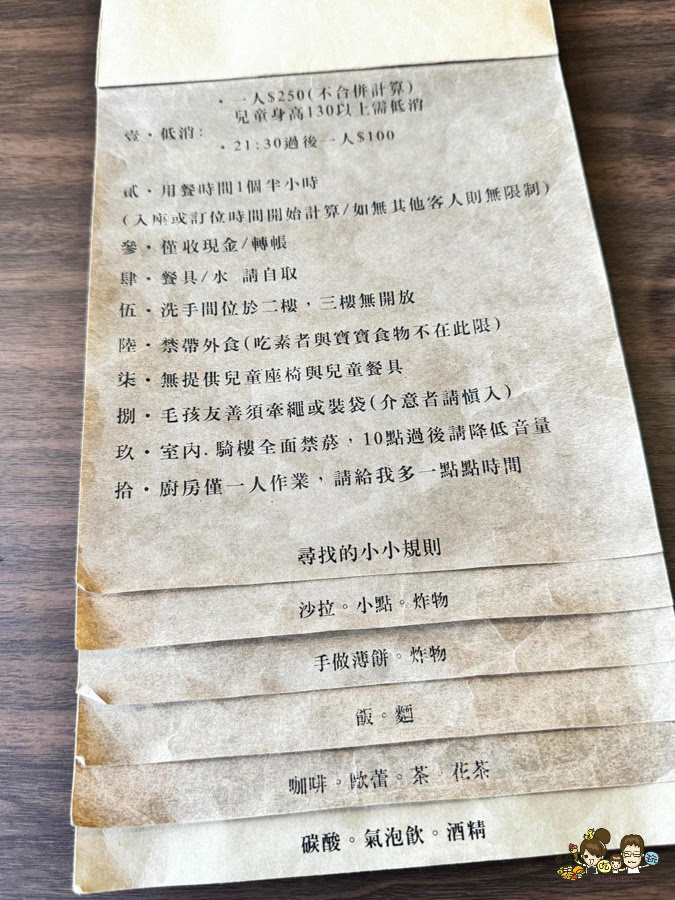 ・一人$250(不合併計算)
兒童身高130以上需低消
壹・低消:
・21:30過後一人$100
貳・用餐時間1個半小時
(入座或訂位時間開始計算/如無其他客人則無限制)
參・僅收現金/轉帳
肆・餐具/水 請自取
伍・洗手間位於二樓，三樓無開放
陸・禁帶外食(吃素者與寶寶食物不在此限)
柒・無提供兒童座椅與兒童餐具
捌・毛孩友善須牽繩或裝袋(介意者請慎入)
玖・室內.騎樓全面禁菸，10點過後請降低音量
拾・廚房僅一人作業，請給我多一點點時間
尋找的小小規則
沙拉。小點。炸物
手做薄餅。炸物
飯。麵
咖啡。歐蕾。茶。花茶
碳酸。氣泡飲。酒精